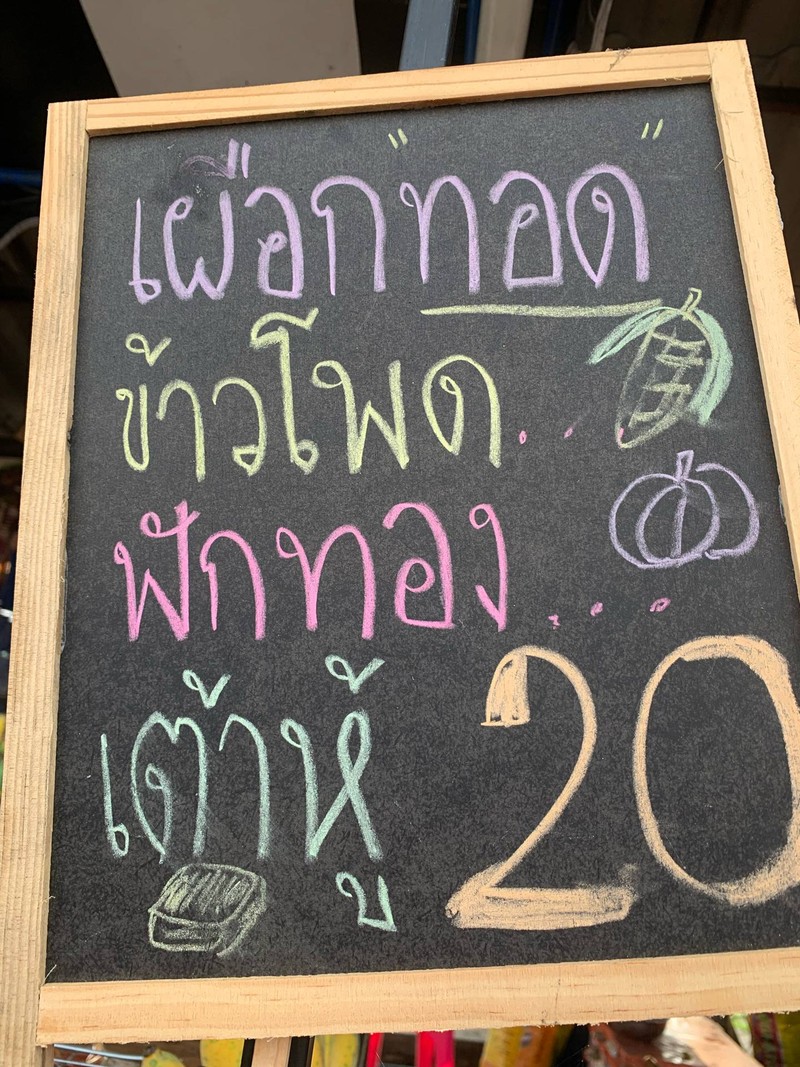 เผือก"ทอด"
ข้าวโพด...
ฟักทอง...
เต้าหู้ 20